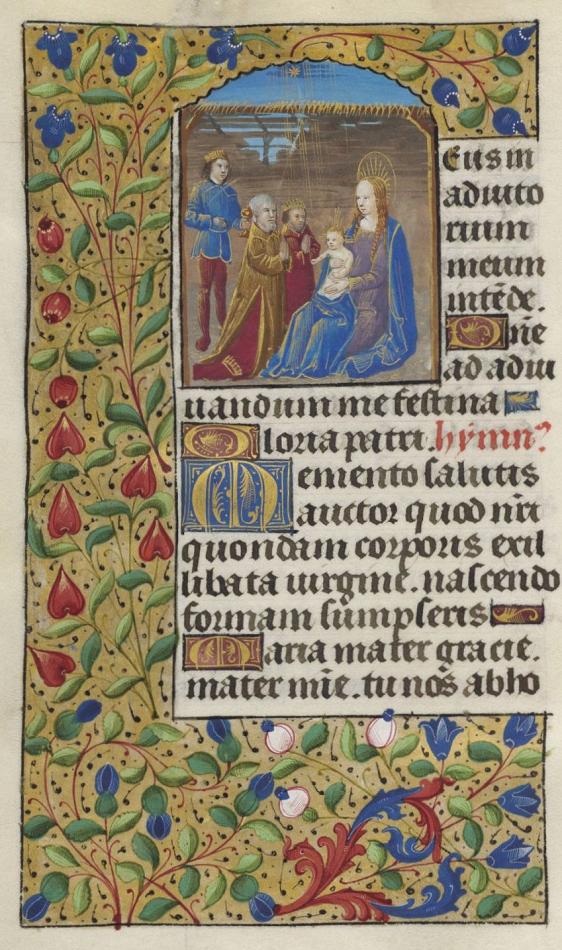 Eus in
adiuto
rium
meum
intēde.
Dñe
ad adiu
uandum me festina
Gloria patri. hymn9
Memento salutis
auctor quod nr̄i
quondam corporis exil
libata uirgine. nascendo
formam sumpseris
Maria mater gracie.
mater mīe. tu nos ab ho